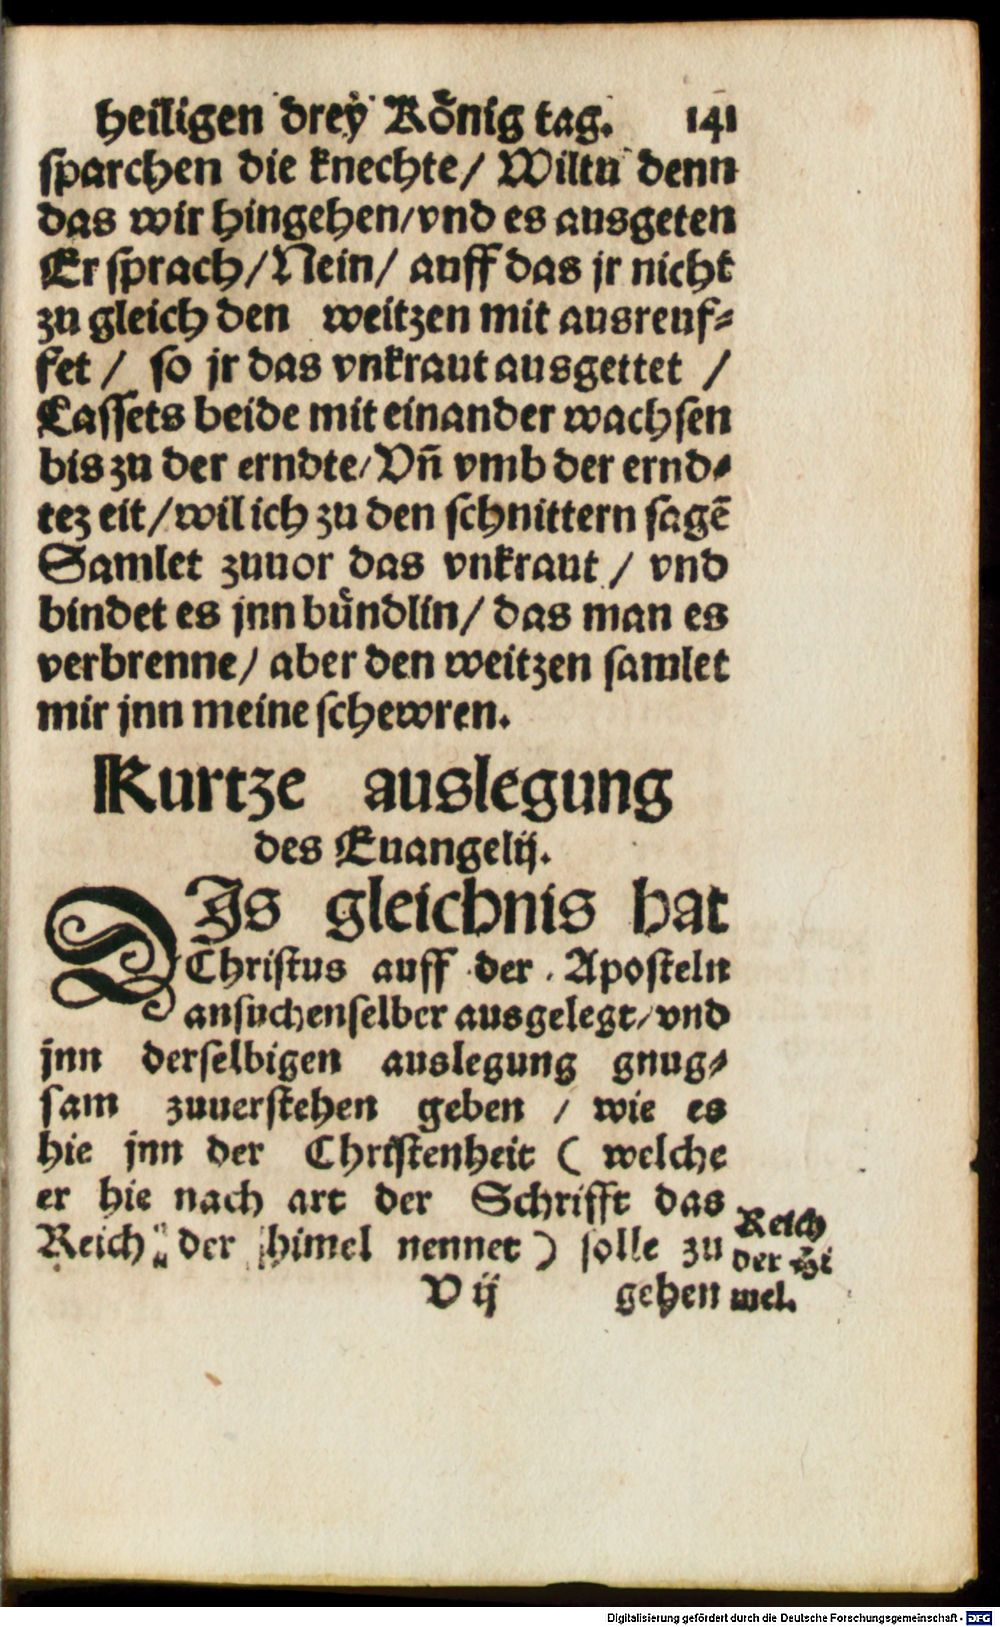 heiligen drey Koͤnig tag. 141
sparchen die knechte/ Wiltu denn
das wir hingehen/vnd es ausgeten
Er sprach/Nein/ auff das jr nicht
zu gleich den weitzen mit ausreuf⸗
fet / so jr das vnkraut ausgettet /
Lassets beide mit einander wachsen
bis zu der erndte/Vñ vmb der ernd⸗
tez eit/wil ich zu den schnittern sagẽ
Samlet zuuor das vnkraut / vnd
bindet es jnn buͤndlin/ das man es
verbrenne/ aber den weitzen samlet
mir jnn meine schewren.
Kurtze auslegung
des Euangelij.
DIs gleichnis hat
Christus auff der Aposteln
ansuchenselber ausgelegt/vnd
jnn derselbigen auslegung gnug⸗
sam zuuerstehen geben / wie es
hie jnn der Christenheit ( welche
er hie nach art der Schrifft das
Reich der himel nennet ) solle zu
Reich
der Hi
mel.
V ij gehen
Digitalisierung gefördert durch die Deutsche Forschungsgemeinschaft - DFG